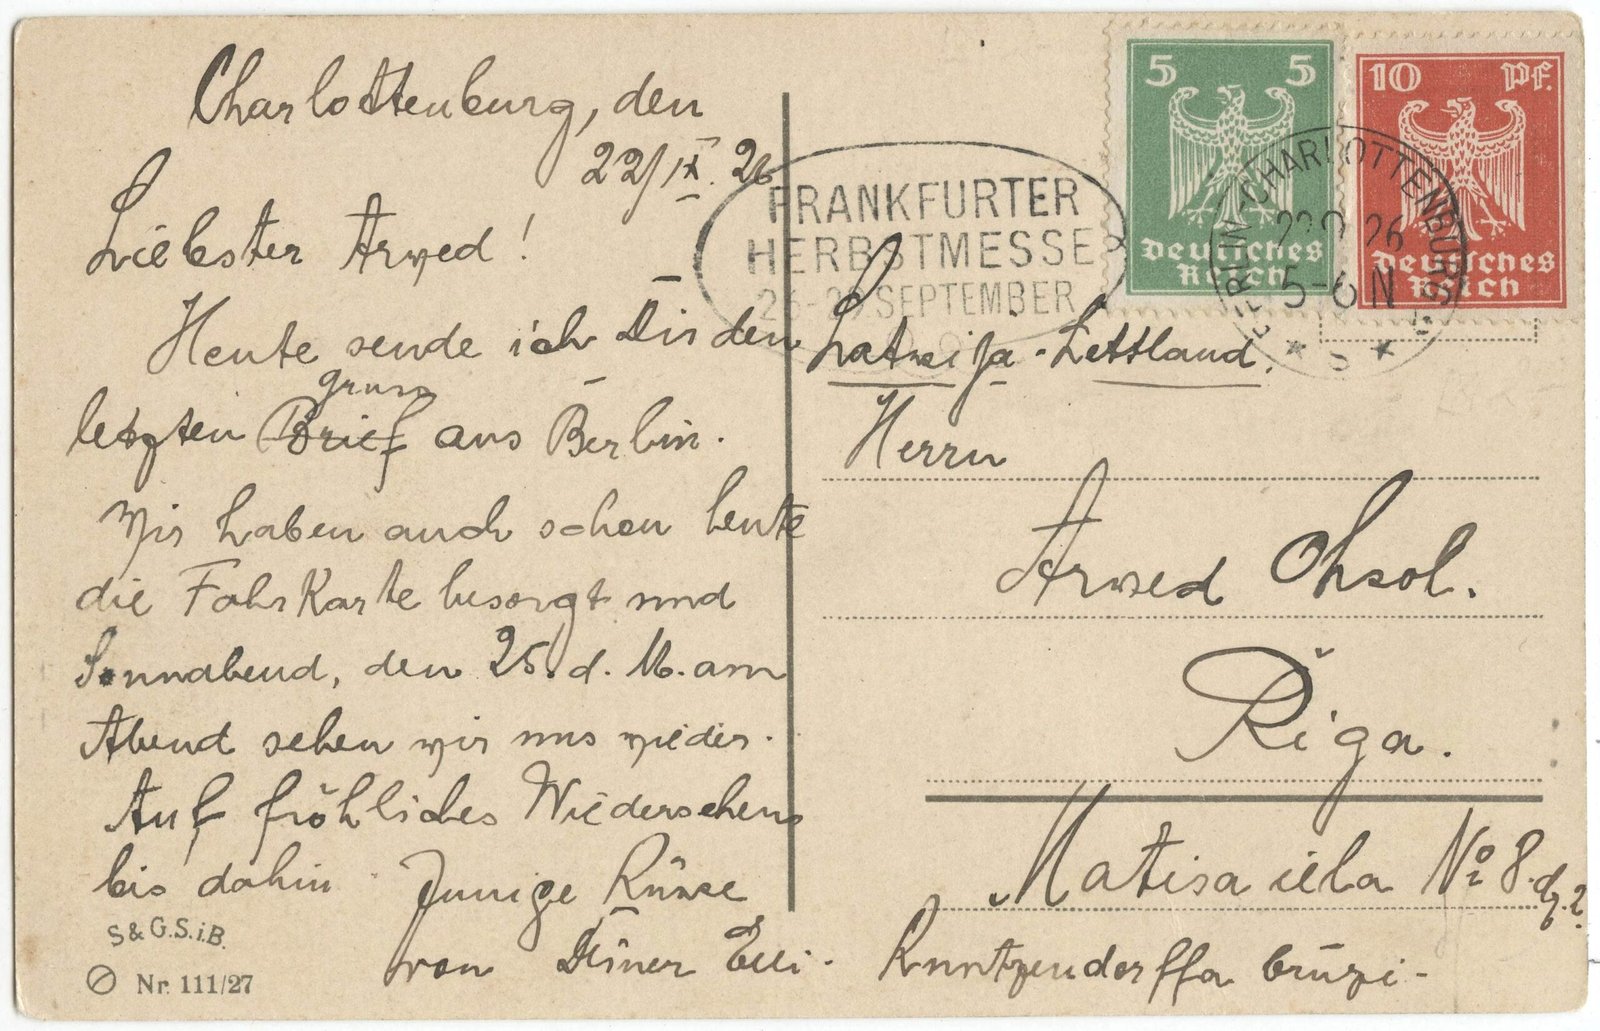 Charlottenburg, den
22/IX. 26
Liebster Arwed!
Heute sende ich Dir den
letzten Brief gruss aus Berlin.
Wir haben auch schon heute
die Fahrkarte besorgt und
Sonnabend, den 25. d. M. am
Abend sehen wir uns wieder.
Auf fröhliches Wiedersehen
bis dahin Innige Küsse
von Deiner Elli.
S & G.S.i.B.
Nr. 111/27
FRANKFURTER
HERBSTMESSE
SEPTEMBER
5 5
Deutsches
Reich
10 Pf.
Deutsches
Reich
BERLIN-CHARLOTTENBURG
22.9.26
5-6N
Latwija-Lettland.
Herrn
Arwed Ohsol.
Riga.
Matisa iela No 8. dz. 2
Kuntzendorffa